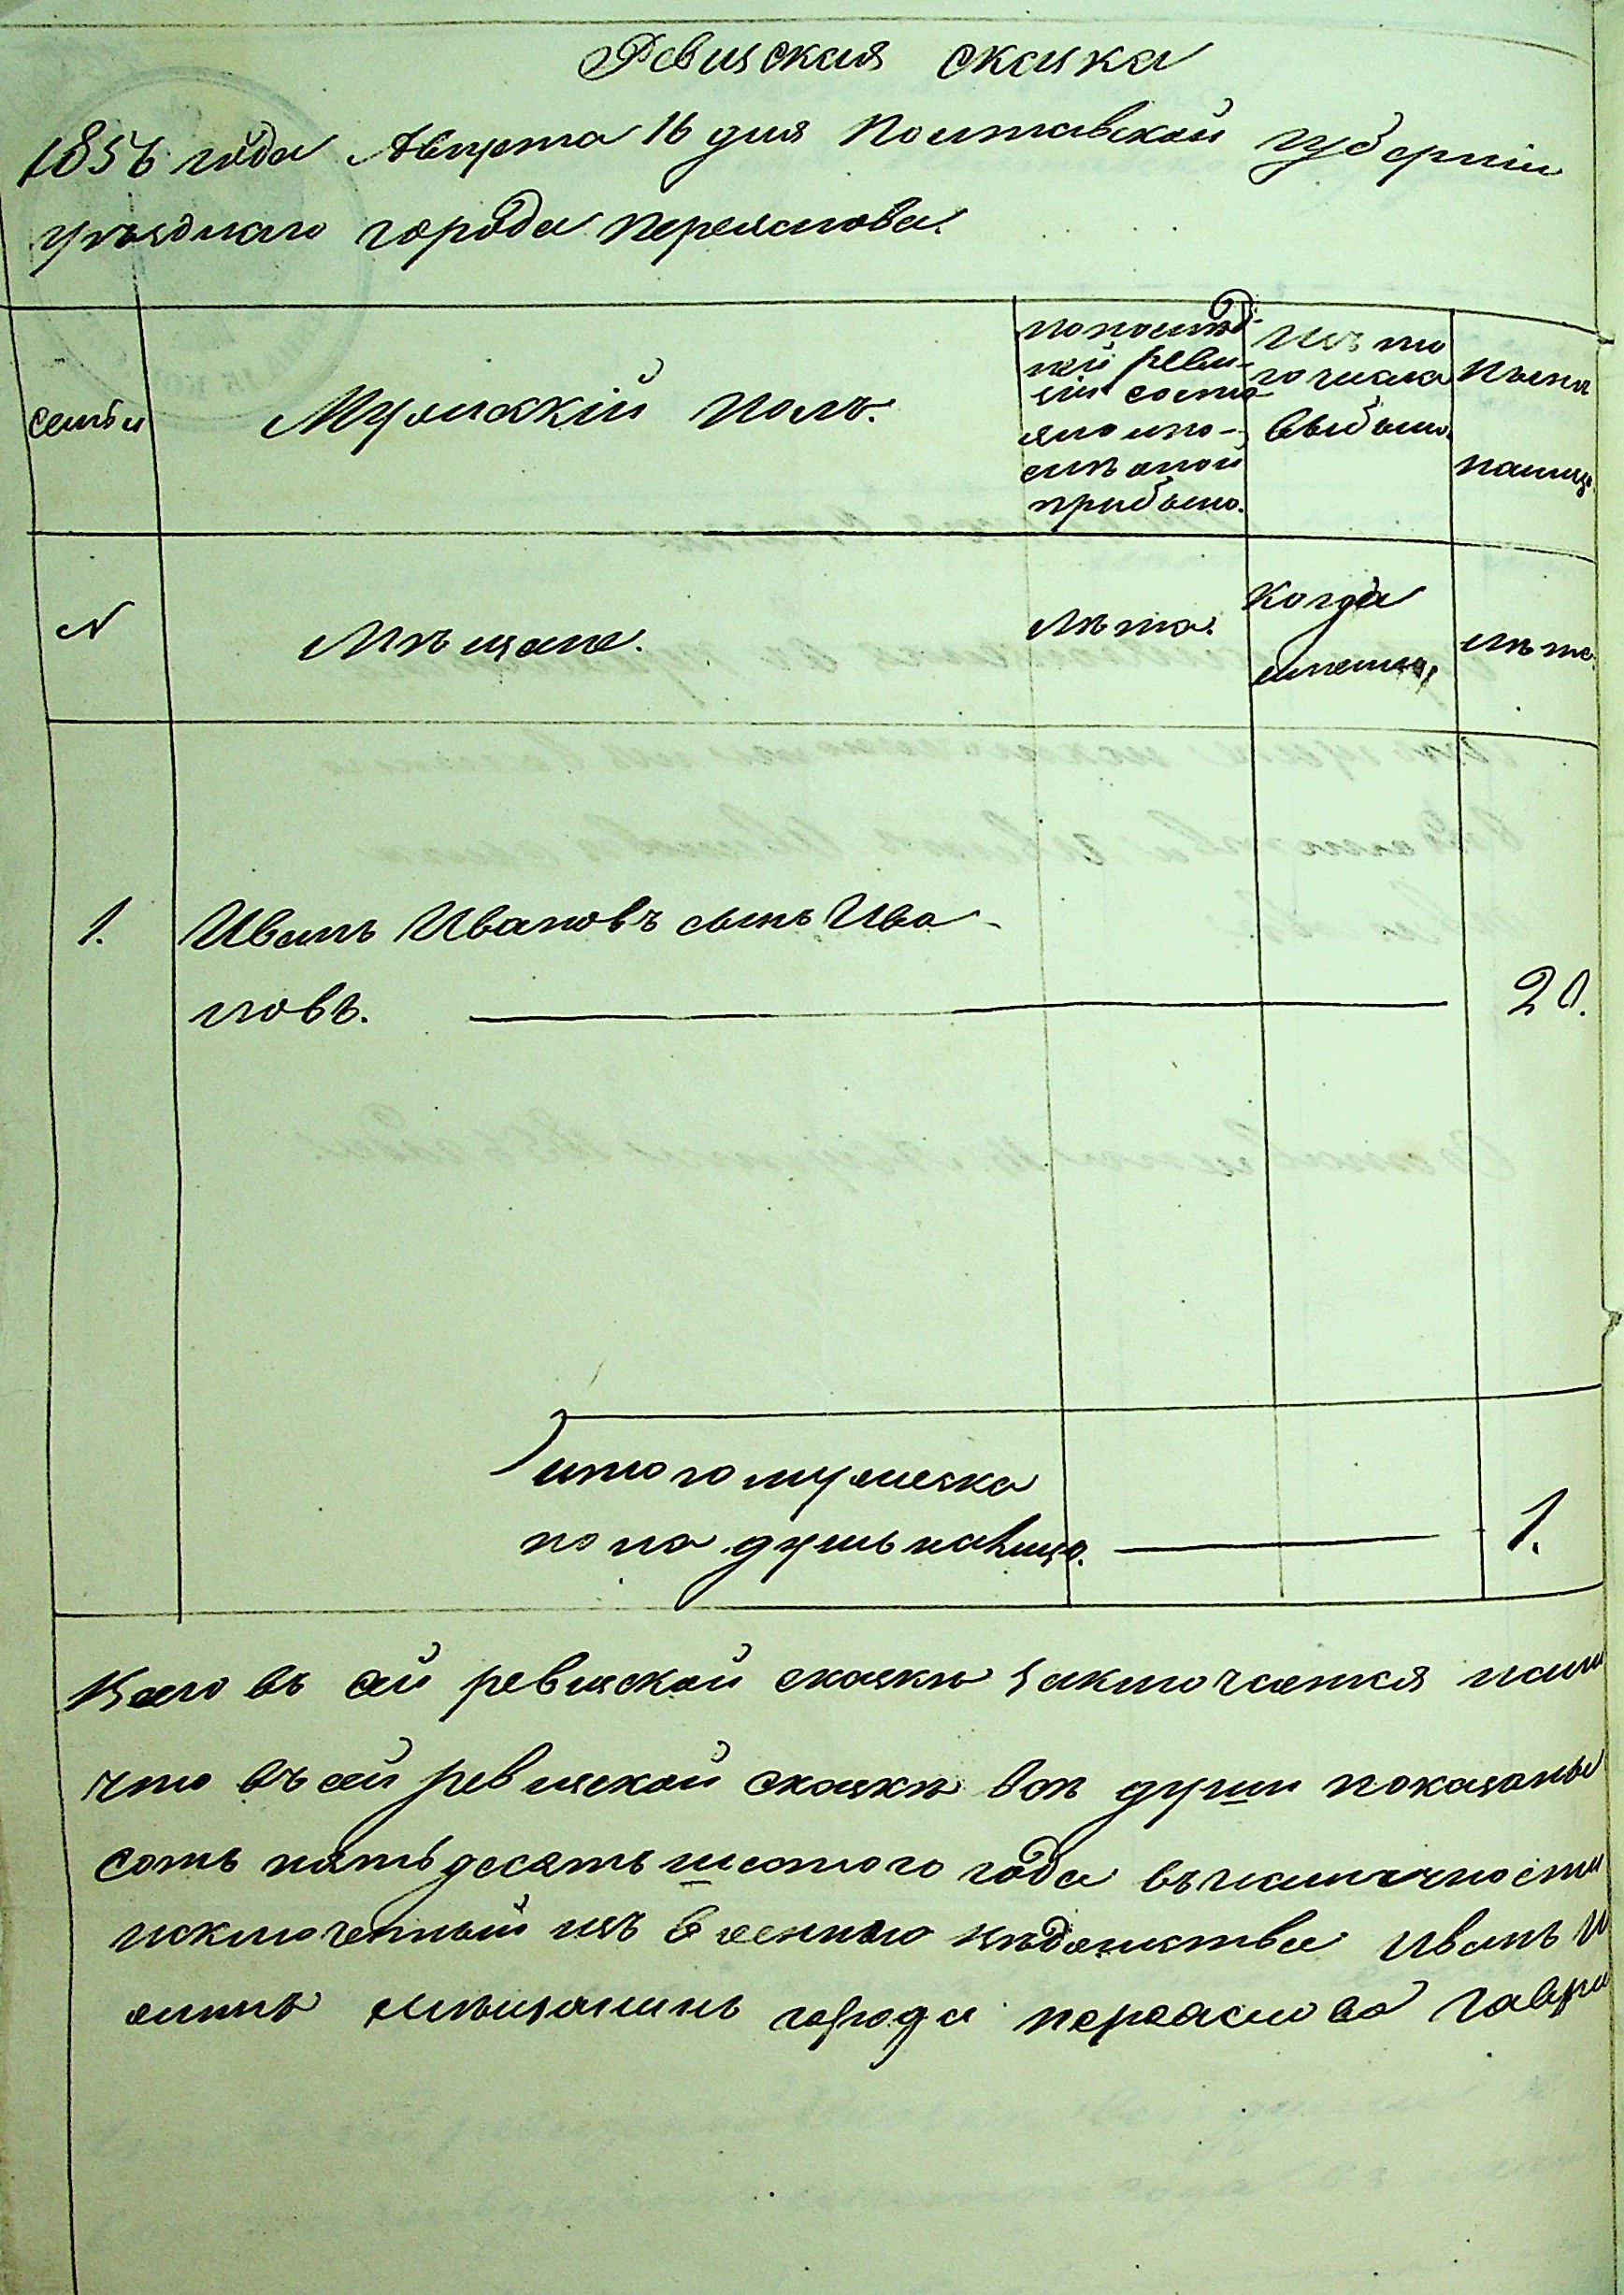 Ревизская сказка
1856 года Августа 16 дня Полтавской губерніи
уѣзднаго города Переяслова.
семьи
Мужескій полъ.
по послѣд-
ней реви-
зіи состо
яло и по-
слѣ оной
прибыло.
Изъ то
го числа
выбыло.
Нынѣ
налицо.
N
Мѣщане.
Лѣта.
Когда
именно,
Лѣта
1.
Иванъ Ивановъ сынъ Ива-
новъ.
20.
итого мужеска
пола душъ налицо.
1.
Всего въ сей ревизской сказкѣ заключается нали
что въ сей ревизской сказкѣ всѣ души показаны
сотъ пятьдесятъ шестого года въ наличности
исключенный изъ военнаго вѣдомства Иванъ И
мѣщанинъ города Переяслова Гаври